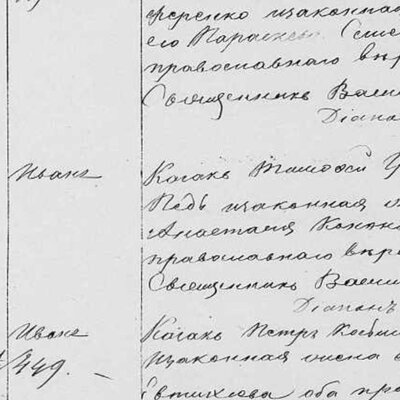 ференко изаконная
его Параскева
православнаго
Священникъ Васи
Діакон
Иванъ
Казакъ Тимофей
изаконная
Анастасія Конон
православнаго вѣро
Священникъ Васи
Діаконъ
Иванъ
Казакъ Петръ
изаконная жена
449. -
Евтихіева оба пра